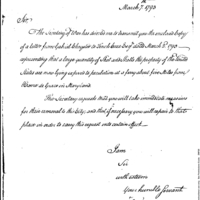 March 7. 1793
Sir,
The Secretary of War has directed me to transmit you the enclosed Copy
of a letter from Gabriel Slingerler to Enoch Enos Esqr. dated March 5. 1793
representing that a large quantity of Shot and Shells the property of the United
States are now lying exposed to peculation at a ferry about four Miles from
in Maryland
The Secretary requests that you will take immediate measures
for their removal to this City; and that if necessary you will repair to that
place in order to carry this request into certain effect.
I am
Sir
with esteem
Your humble Servant